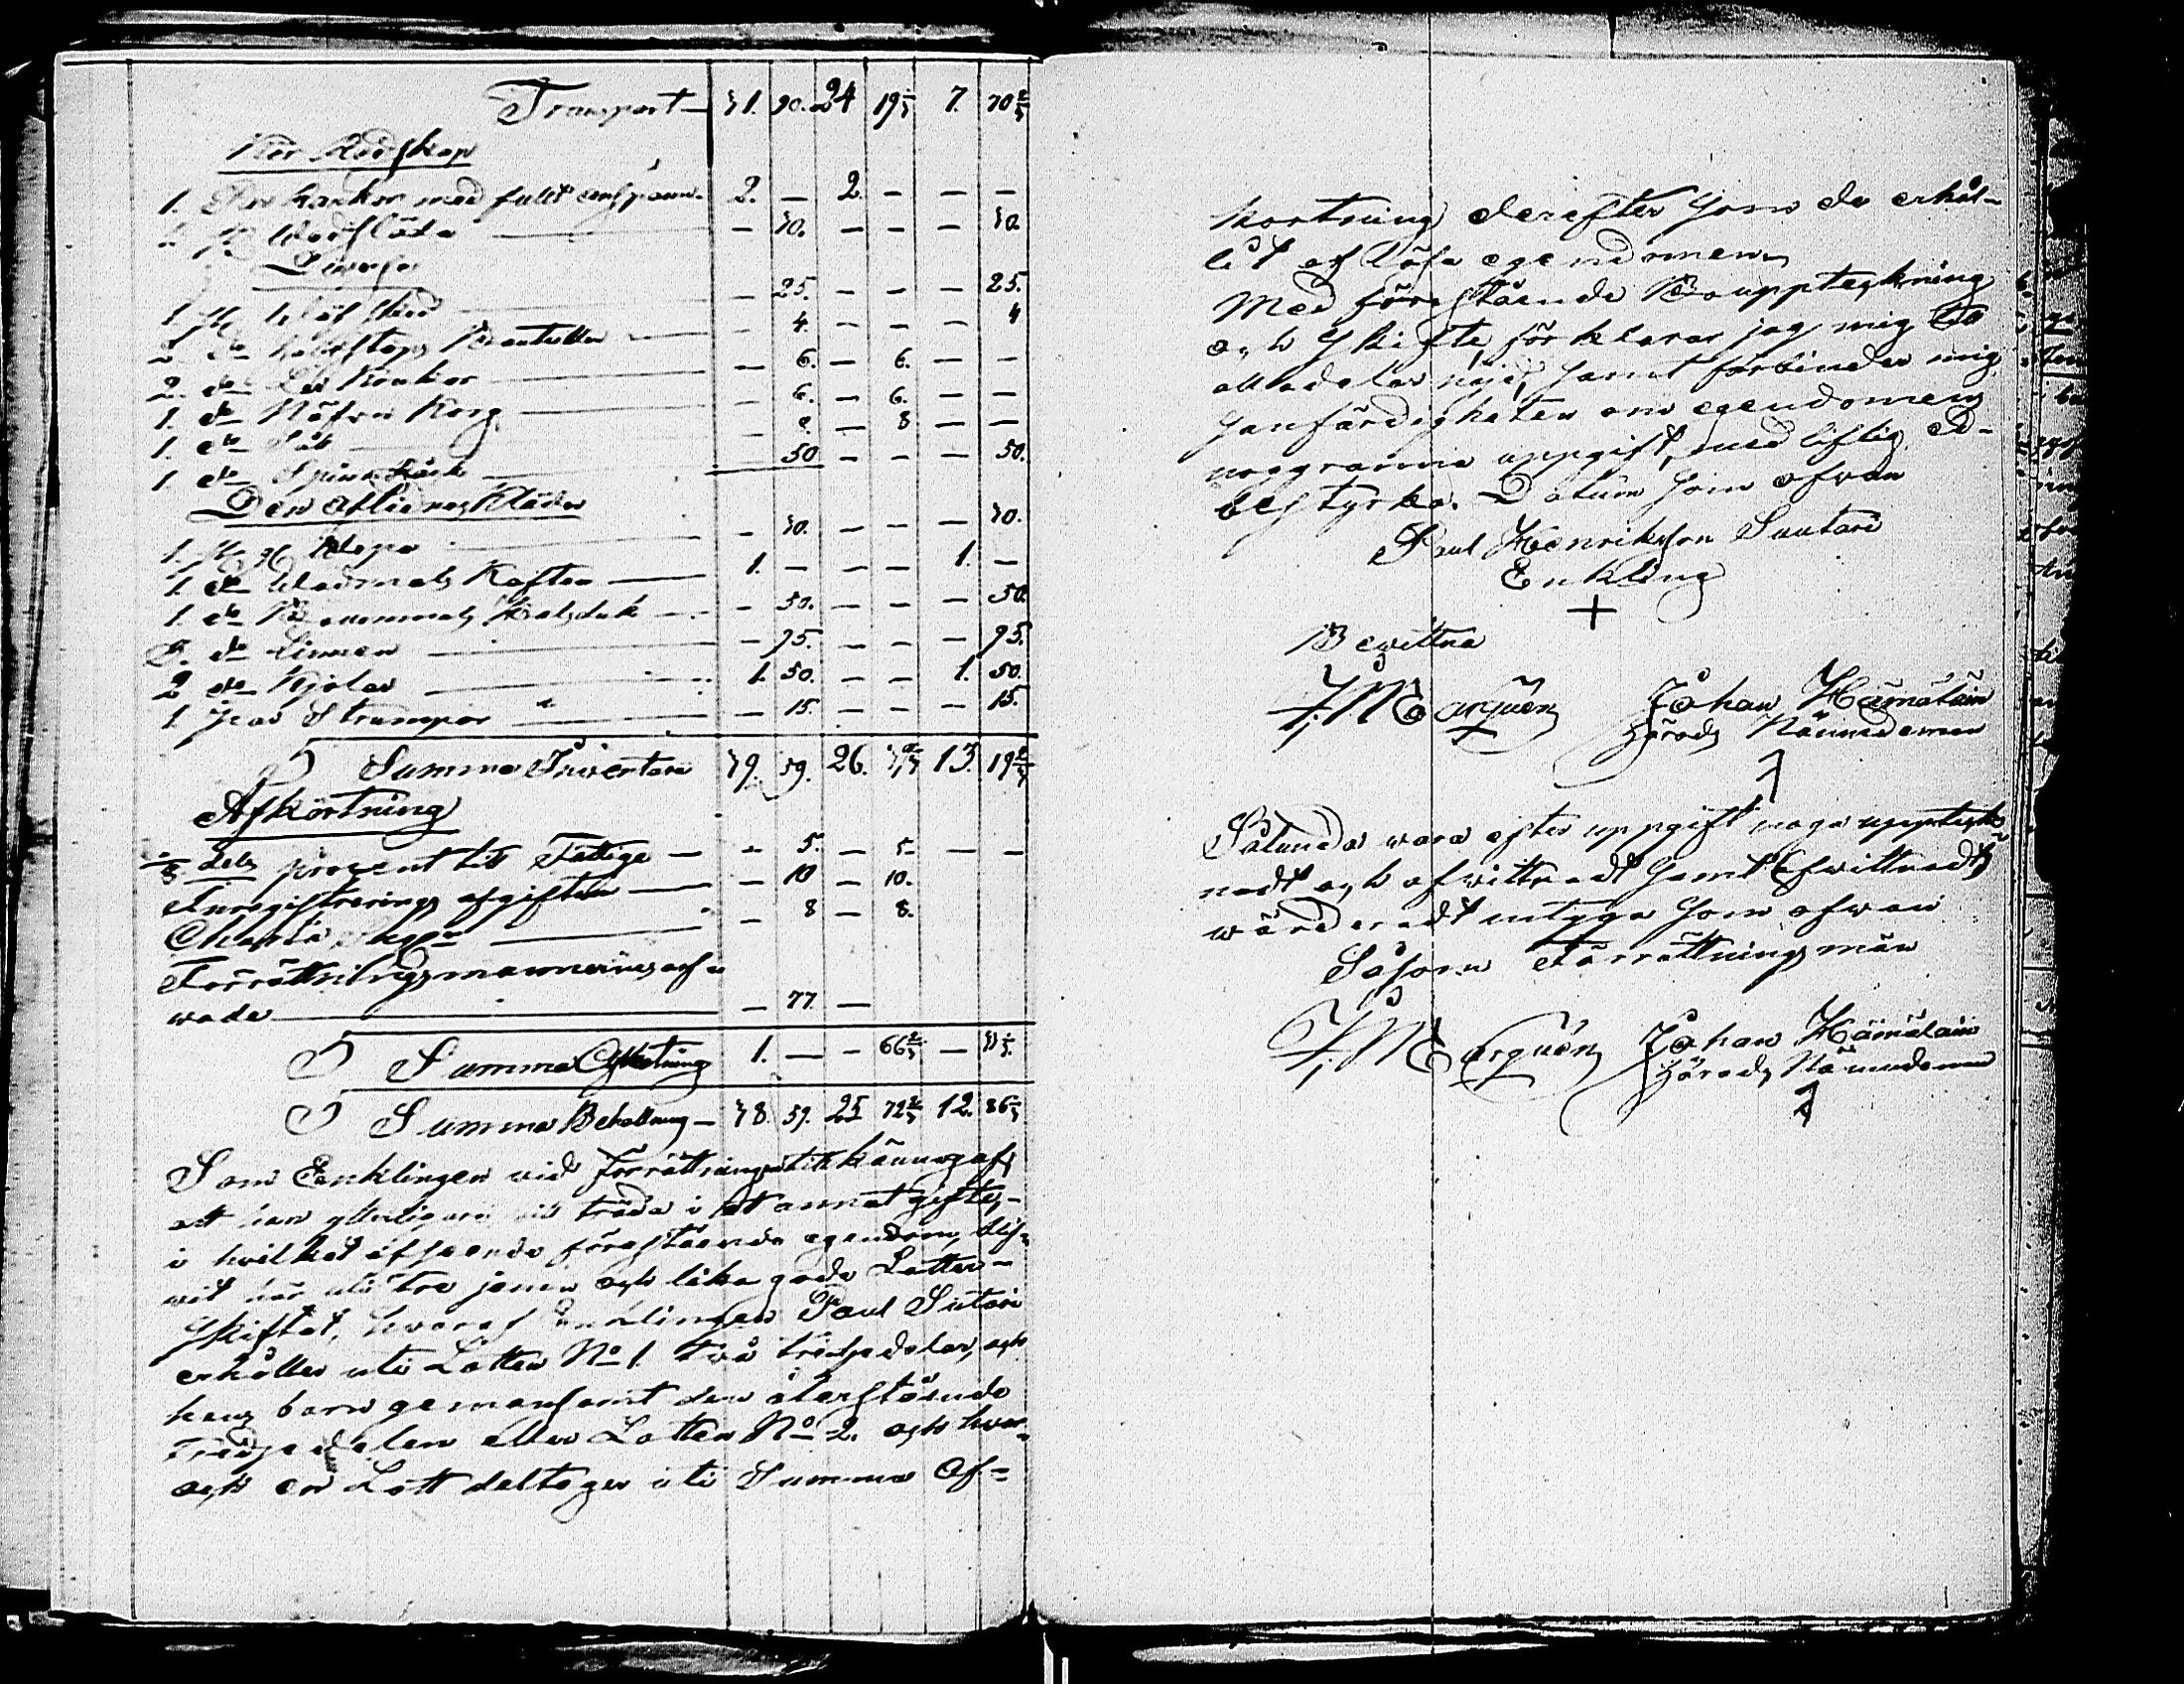 Transport — 31. 90. 24 19⅓ 7. 70⅔
Kör Redskap
1. Par kärror med fullt anspann. 2. — 2. — — —
1. st. Wedsläde — 30. — — — 30.
Diverse
1. st. — 25. — — — 25.
2. do — 4. — — — 4
2. do Ler Krukor — 6. — 6. — —
1. do Näfver Korg — 6. — 6. — —
1. do Såll — 8. — 8 — —
1. do Spinn Råck — 50 — — — 50.
Den Aflidnes Kläder
1. st. — 30. — — — 30.
1. do Wadmals Kaften 1. — — — 1. —
1. do Bommuls Halsduk — 50. — — — 50.
3. do Linnen — 75. — — — 75.
2 do Kjolar 1. 50. — — 1. 50.
1. Par Strumpor — 15. — — — 15.
Summa Inventarii 39. 59. 26. 39⅓ 13. 19⅔
Afkortning
⅛ dels procent till Fattige — — 5. — 5. — —
Inregistrerings afgiften — 10 — 10.
Charta Sigil — 8 — 8.
Förrättningsmännernes arf-
wode — 77. —
Summa Afkortning 1. — — 66⅔ — 33⅓.
Summa Behållning — 38. 59. 25 72⅔ 12. 86⅓
Som Enklingen vid förrättningen tillkännagaf,
att han ytterligare vill träda i ett annat gifte, -
i hvilket afseende förestående egendom, blif-
vit här uti tre jemna och lika goda Lotter -
Skiftat, hvaraf Enklingen Paul Sutari
erhåller uti Lotten No 1. två tredjedelar, och
hans barn gemensamt den återstående
Tredjedelen eller Lotten No 2. och hvar-
och en Lott deltager uti Summa Af-
kortning derefter som de erhål-
lit af Lösa egendomen,
Med förestående Bouppteckning
och Skifte, förklarar jag mig till
alla delar nöjd, samt förbinder mig
sanfärdigheten om egendomens
noggranna uppgift, med liflig ed -
bestyrka. Datum som ofvan
Paul Henriksson Suutari
Enkling
+
Bevittna
Johan Hämäläin
Härads Nämndeman
Sålunda vara efter uppgift noga uppteck-
nadt och afvittradt samt Efwittradt
wärderadt intyga som ofvan
Såsom Förrättningsmän
Johan Hämäläin
Härads Nämndeman